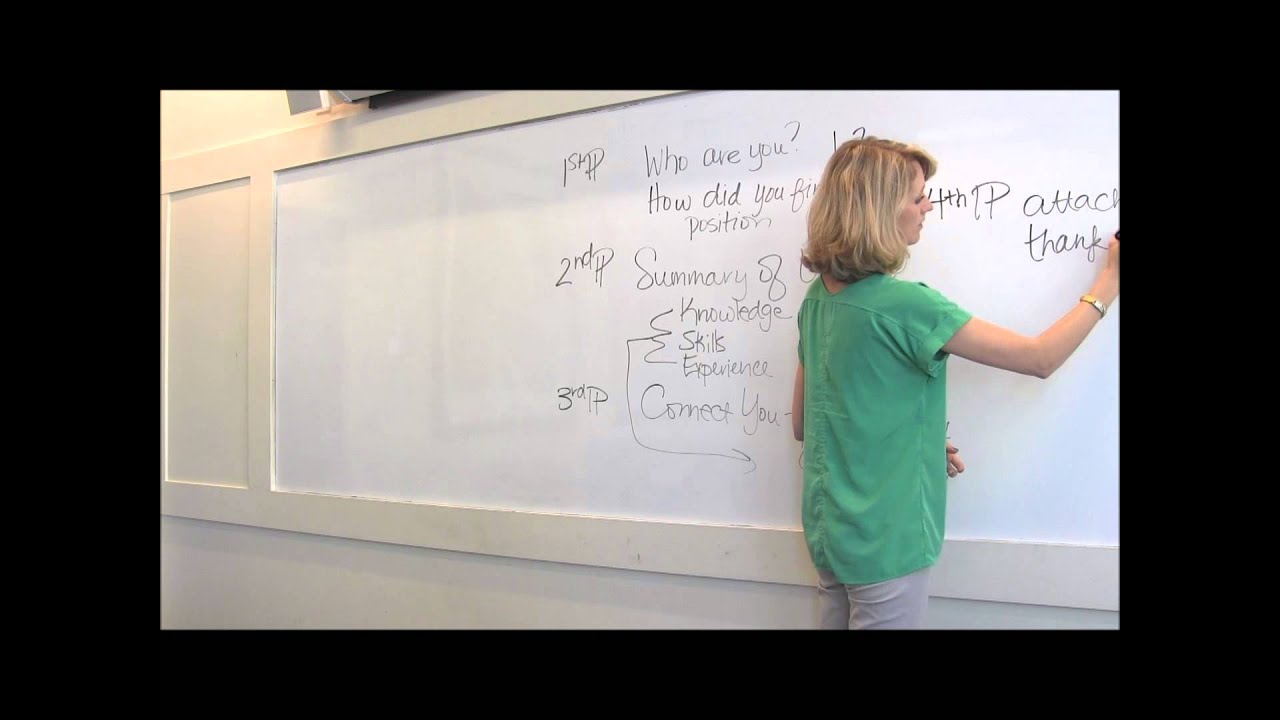 1st P Who are you?
How did you
position
2nd P Summary of
Knowledge
Skills
Experience
3rd P Connect You -
4th P attach
thank